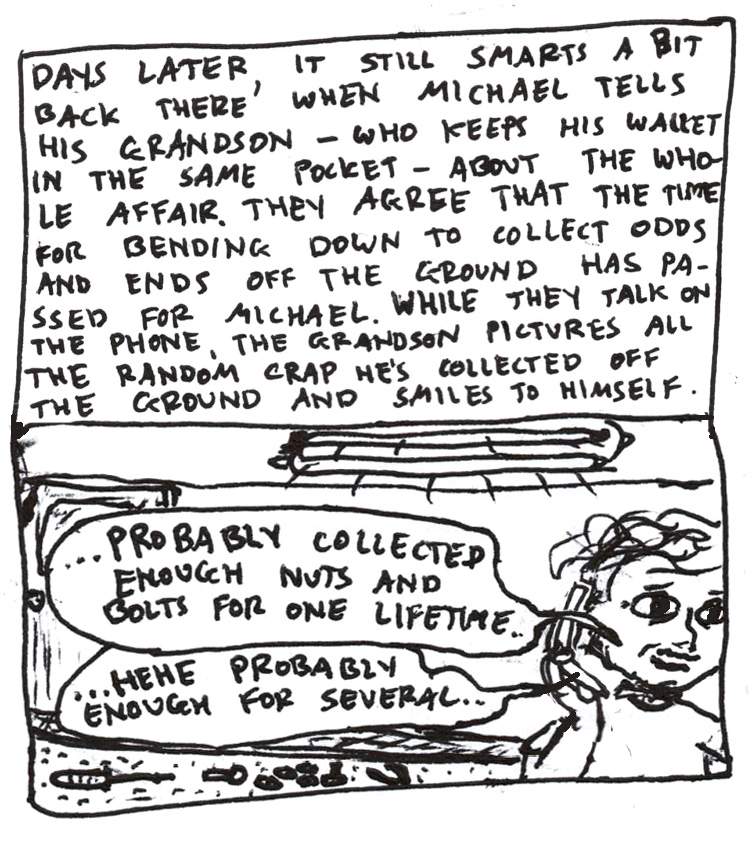 DAYS LATER, IT STILL SMARTS A BIT
BACK THERE WHEN MICHAEL TELLS
HIS GRANDSON – WHO KEEPS HIS WALLET
IN THE SAME POCKET – ABOUT THE WHO-
LE AFFAIR. THEY AGREE THAT THE TIME
FOR BENDING DOWN TO COLLECT ODDS
AND ENDS OFF THE GROUND HAS PA-
SSED FOR MICHAEL. WHILE THEY TALK ON
THE PHONE, THE GRANDSON PICTURES ALL
THE RANDOM CRAP HE'S COLLECTED OFF
THE GROUND AND SMILES TO HIMSELF.
...PROBABLY COLLECTED
ENOUGH NUTS AND
BOLTS FOR ONE LIFETIME..
...HEHE PROBABLY
ENOUGH FOR SEVERAL...